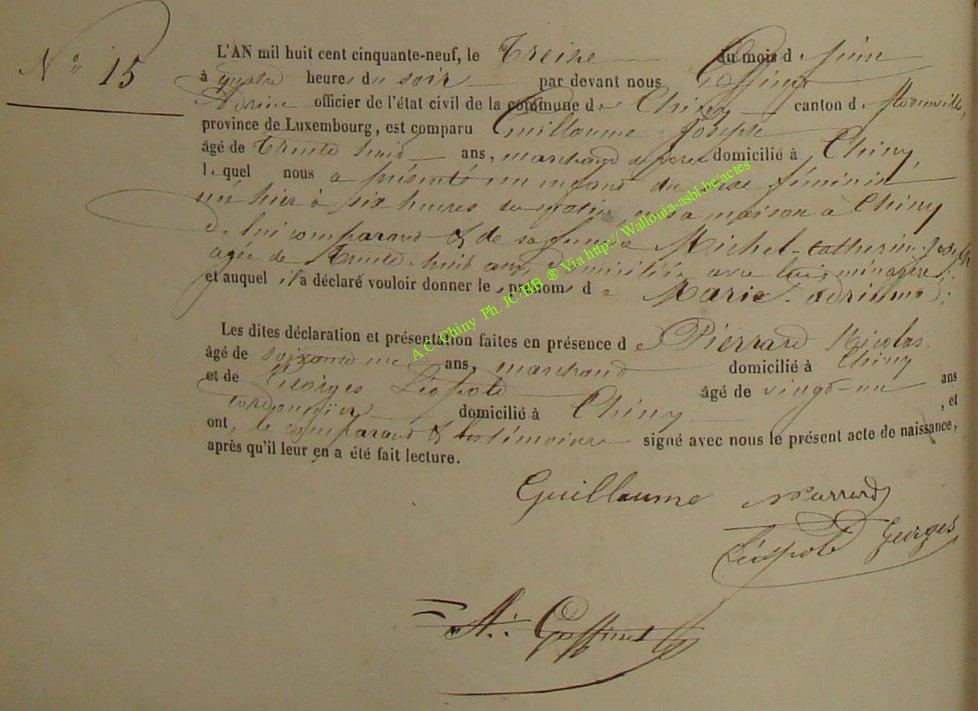 N° 15
L'AN mil huit cent cinquante-neuf, le Treize du mois de Juin
à quatre heures du soir par devant nous Goffinet
Adrien officier de l'état civil de la commune de Chiny canton de Florenville,
province de Luxembourg, est comparu Guillaume Joseph
âgé de Trente huit ans, marchand domicilié à Chiny,
lequel nous a présenté un enfant du sexe féminin
né hier à six heures du matin en sa maison à Chiny
de lui comparant & de sa femme Michel Catherine Joseph
agée de Trente-huit ans, domiciliée avec lui, ménagère;
et auquel il a déclaré vouloir donner les prénoms de Marie Adrienne;
Les dites déclaration et présentation faites en présence de Pierrard Nicolas
âgé de soixante un ans, marchand domicilié à Chiny
et de Georges Léopold âgé de vingt-un ans
cordonnier domicilié à Chiny, et
ont, le comparant & les témoins signé avec nous le présent acte de naissance,
après qu'il leur en a été fait lecture.
Guillaume Pierrard
Léopold Georges
A. Goffinet
A.C. Chiny Ph. JC/HB ® Via http://Wallonia-asbl.be/actes